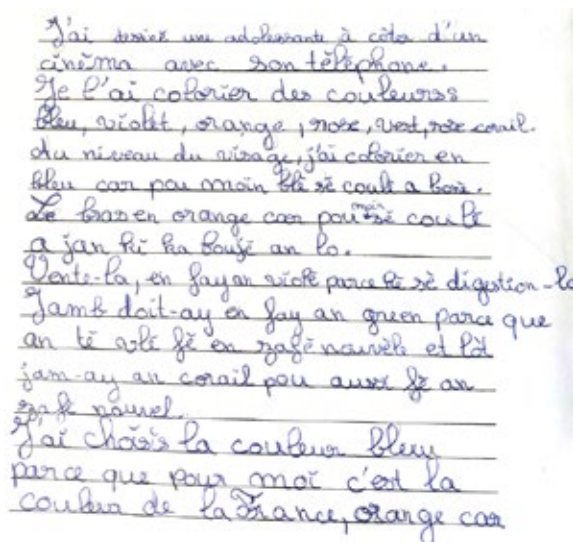 J'ai dessiné une adolessante à côter d'un
cinéma avec son téléphone.
Je l'ai colorier des couleurss
bleu, violet, orange, rose, vert, rose corail.
Au niveau du visage, j'ai colorier en
bleu car pou moin blé sé coulè a
Le bras en orange car pou moin sé coulè
a jan ki ka boujé an lo.
Vente-la, en fay an violè parce ki sè digestion-la
Jamb doit-ay en fay an green parce que
an té vlé fè en zafè nouvèle et lòt
jam-ay an corail pou aussi fè an
zafè nouvel.
J'ai choisis la couleur bleu
parce que pour moi c'est la
couleur de la France, orange car